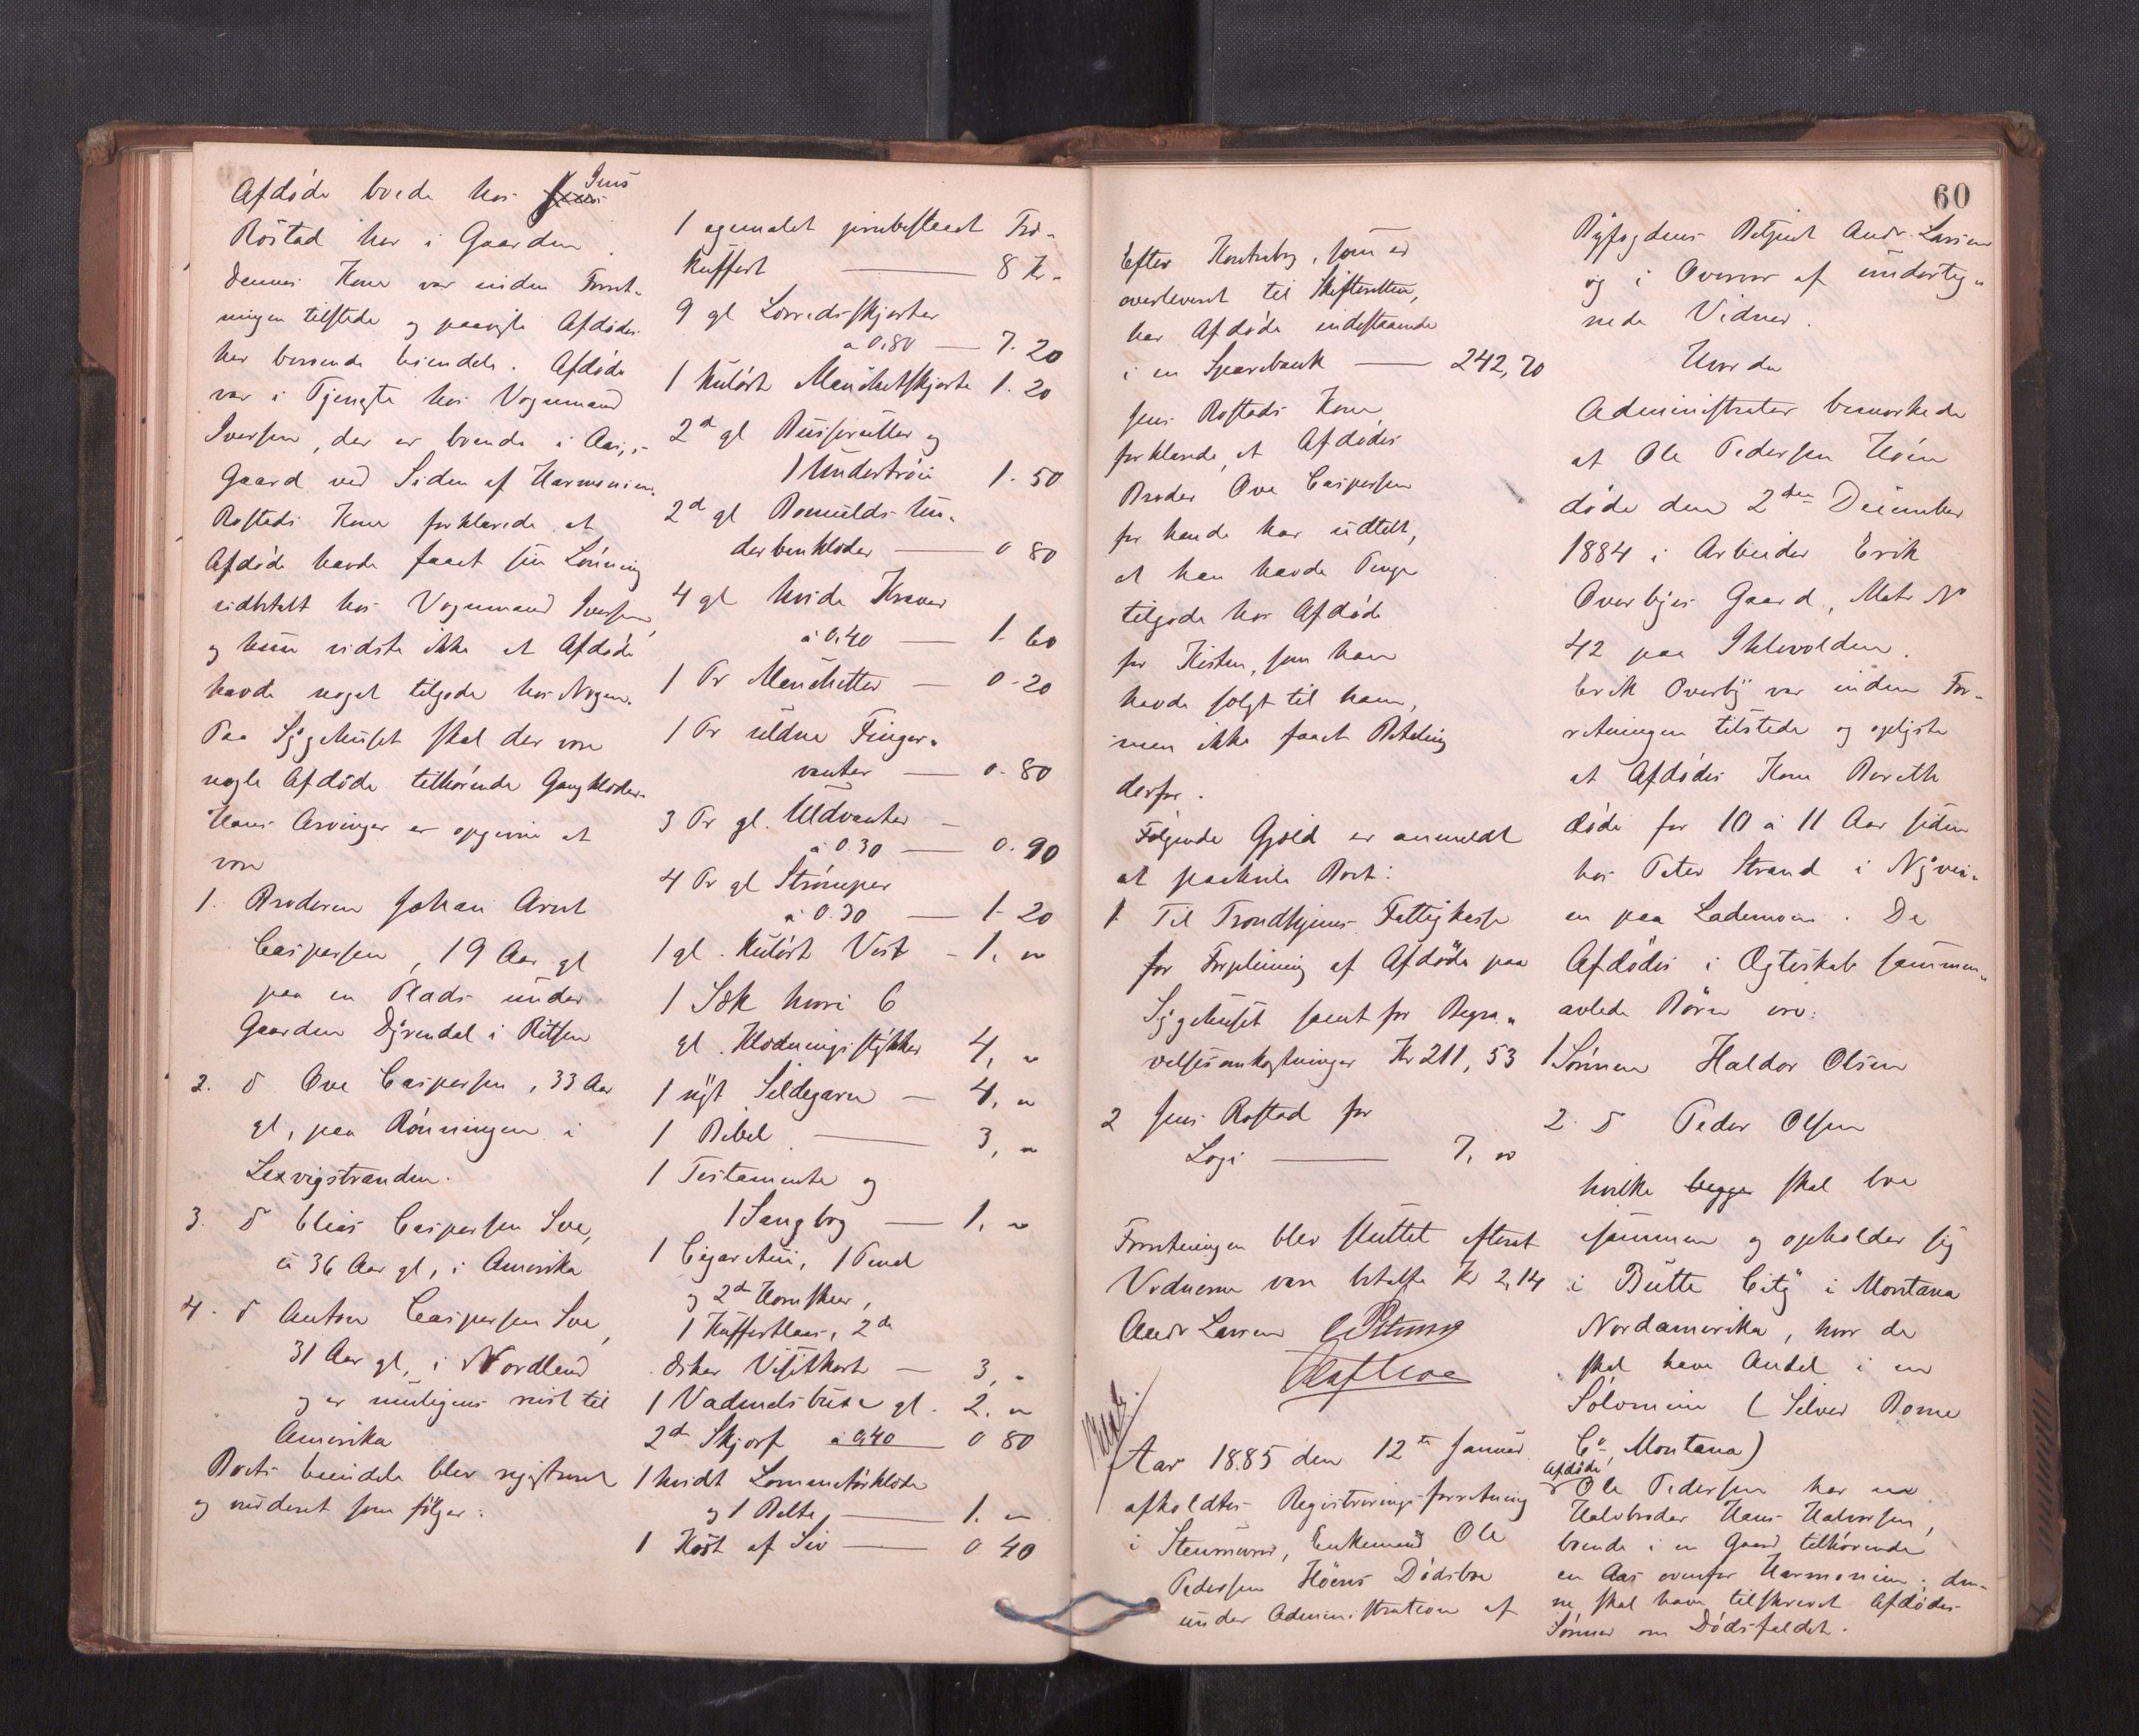 Afdøde boede hos Jens
Rostad her i Gaarden
dennes Kone var under Forret-
ningen tilstede og paaviste Afdødes
her beroende Eiendele. Afdøde
var i Tjeneste hos Vognmand
Iversen, der er boende i Aas,,-
Gaard ved Siden af Harmonien.
Rostads Kone forklarede at
Afdøde havde faaet sin Lønning
udbetalt hos Vognmand Iversen,
og hun vidste ikke at Afdøde
havde noget tilgode hos Nogen.
Paa Sygehuset skal der være
nogle Afdøde tilhørende Gangklæder.
Hans Arvinger er opgivne at
være
1. Broderen Johan Arnt
Caspersen, 19 Aar gl
paa en Plads under
Gaarden Dyrendal i Ritsen
2. d Ove Caspersen, 33 Aar
gl, paa Rønningen i
Lexvigstranden.
3. d Elias Caspersen Soe,
c 36 Aar gl, i Amerika
4. d Anton Caspersen Soe,
31 Aar gl, i Nordland
og er muligens reist til
Amerika
Boets Eiendele blev registreret
og vurderet som følger:
1 egemalet jernbeslaaet Træ-
Kuffert — 8 Kr.
9 gl Lærredsskjorter
a 0.80 — 7. 20
1 kulørt Manchetskjorte 1. 20
2d gl Busseruller og
1 Undertrøie 1. 50
2d gl Bomulds Un-
derbenklæder — 0 80
4 gl hvide Kraver
a 0.40 — 1- 60
1 Pr Manchetter — 0-20
1 Pr uldne Finger-
vanter — 0. 80
3 Pr gl. Uldvanter —
a 0.30 — 0. 90
4 Pr gl Strømper
a 0.30 — 1- 20
1 gl. kulørt Vest - 1. "
1 Sæk hvori 6
gl. Klædningsstykker 4, "
1 nyt Sildegarn — 4, "
1 Bibel — 3, "
1 Testamente og
1 Sangbog — 1. "
1 Cigar Etui, 1 Penal
og 2d Hornskeer,
1 Kuffertlaas, 2de
Æsker Visitkort — 3, "
1 Vadmelsbuxe gl. 2. "
2d Skjærf a 0.40 0 80
1 hvidt Lommetørklæde
og 1 Belte — 1. "
1 Kost af Siv — 0 40
60
Efter Kontrabog, som er
overleveret til Skifteretten,
har Afdøde indestaaende
i en Sparebank — 242,70
Jens Rostads Kone
forklarede, at Afdødes
Broder Ove Caspersen
for hende har udtalt,
at han havde Penge
tilgode hos Afdøde
for Kisten, som han
havde solgt til ham,
men ikke faaet Betaling
derfor.
Følgende Gjæld er anmeldt
at paahvile Boet:
1 Til Trondhjems Fattigkasse
for Forpleining af Afdøde paa
Sygehuset samt for Begra-
velsesomkostninger Kr 211, 53
2 Jens Rostad for
Logi — 7. "
Forretningen blev sluttet efterat
Vidnerne vare betalte Kr 2,14
Andr Larsen
Aar 1885 den 12te Januar
afholdtes Registreringsforretning
i Stenhuver, Enkemand Ole
Pedersen Høens Dødsbo
under Administration af
Byfogdens Betjent Andr. Larsen
og i Overvær af underteg-
nede Vidner.
Hvorda
Administrator bemærkede
at Ole Pedersen Høen
døde den 2den December
1884 i Arbeider Erik
Overbyes Gaard, Matr No
42 paa Ihlevolden.
Erik Overby var under For-
retningen tilstede og oplyste
at Afdødes Kone Bereth
døde for 10 a 11 Aar siden
hos Peter Strand i Nyvei-
en paa Lademoen. De
Afdødes i Ægteskab sammen-
avlede Børn ere:
1 Sønnen Haldor Olsen
2. d Peder Olsen
hvilke begge skal boe
sammen og opholder sig
i Butte City i Montana
Nordamerika, hvor de
skal have Andel i en
Sølvmine (Silver Borne
Co, Montana)
Afdøde
Ole Pedersen har en
Halvbroder Hans Halvorsen,
boende i en Gaard tilhørende
en Aas ovenfor Harmonien; den-
ne skal have tilskrevet Afdødes
Sønner om Dødsfaldet.